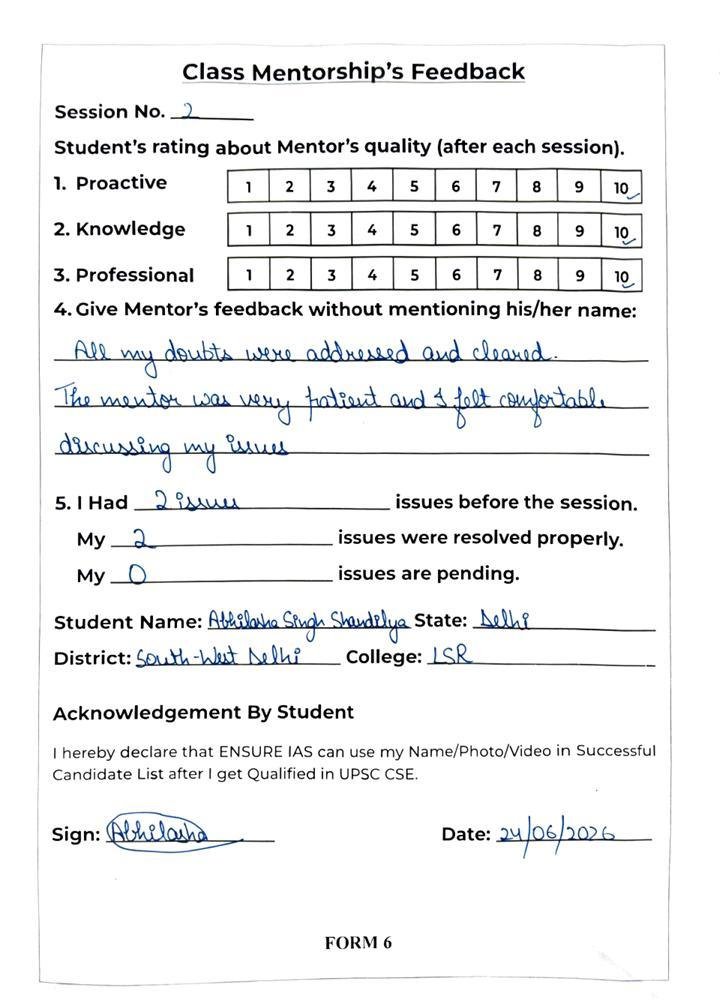 Class Mentorship's Feedback
Session No. 2
Student's rating about Mentor's quality (after each session).
1. Proactive 1 2 3 4 5 6 7 8 9 10
2. Knowledge 1 2 3 4 5 6 7 8 9 10
3. Professional 1 2 3 4 5 6 7 8 9 10
4. Give Mentor's feedback without mentioning his/her name:
All my doubts were addressed and cleared.
The mentor was very patient and I felt comfortable
discussing my issues
5. I Had 2 issues issues before the session.
My 2 issues were resolved properly.
My 0 issues are pending.
Student Name: Abhilasha Singh Shandilya State: Delhi
District: South-West Delhi College: LSR
Acknowledgement By Student
I hereby declare that ENSURE IAS can use my Name/Photo/Video in Successful
Candidate List after I get Qualified in UPSC CSE.
Sign: Abhilasha Date: 24/06/2026
FORM 6